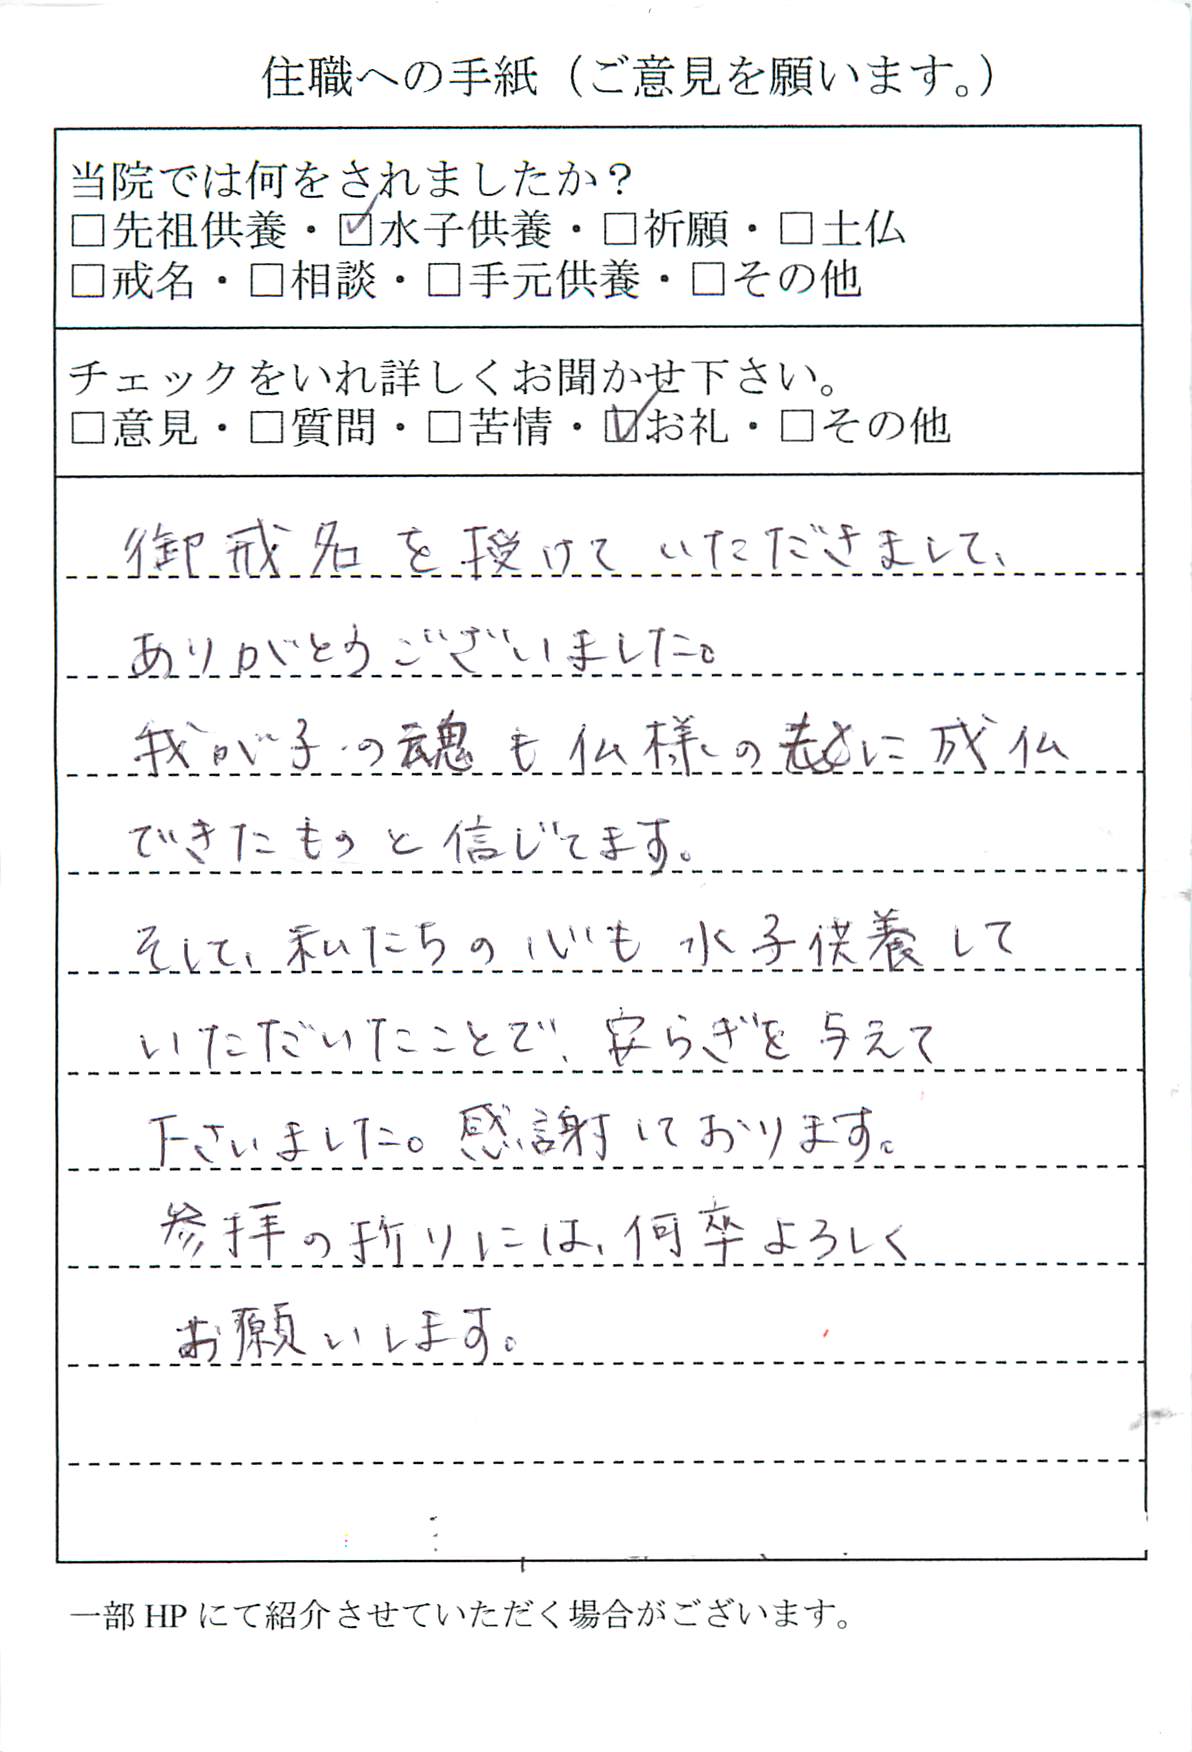 住職への手紙（ご意見を願います。）
当院では何をされましたか？
□先祖供養・☑水子供養・□祈願・□土仏
□戒名・□相談・□手元供養・□その他
チェックをいれ詳しくお聞かせ下さい。
□意見・□質問・□苦情・☑お礼・□その他
御戒名を授けていただきまして、
ありがとうございました。
我が子の魂も仏様の許に成仏
できたものと信じてます。
そして、私たちの心も水子供養して
いただいたことで、安らぎを与えて
下さいました。感謝しております。
参拝の折りには、何卒よろしく
お願いします。
一部HPにて紹介させていただく場合がございます。